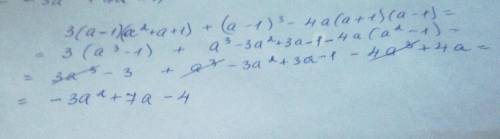 3(a-1)(a²+a+1) + (a-1)³ - 4a(a+1)(a-1) =
= 3(a³-1) + a³-3a²+3a-1-4a(a²-1) =
= 3a³ - 3 + a³ - 3a²+3a-1 - 4a³+4a =
= -3a²+7a-4